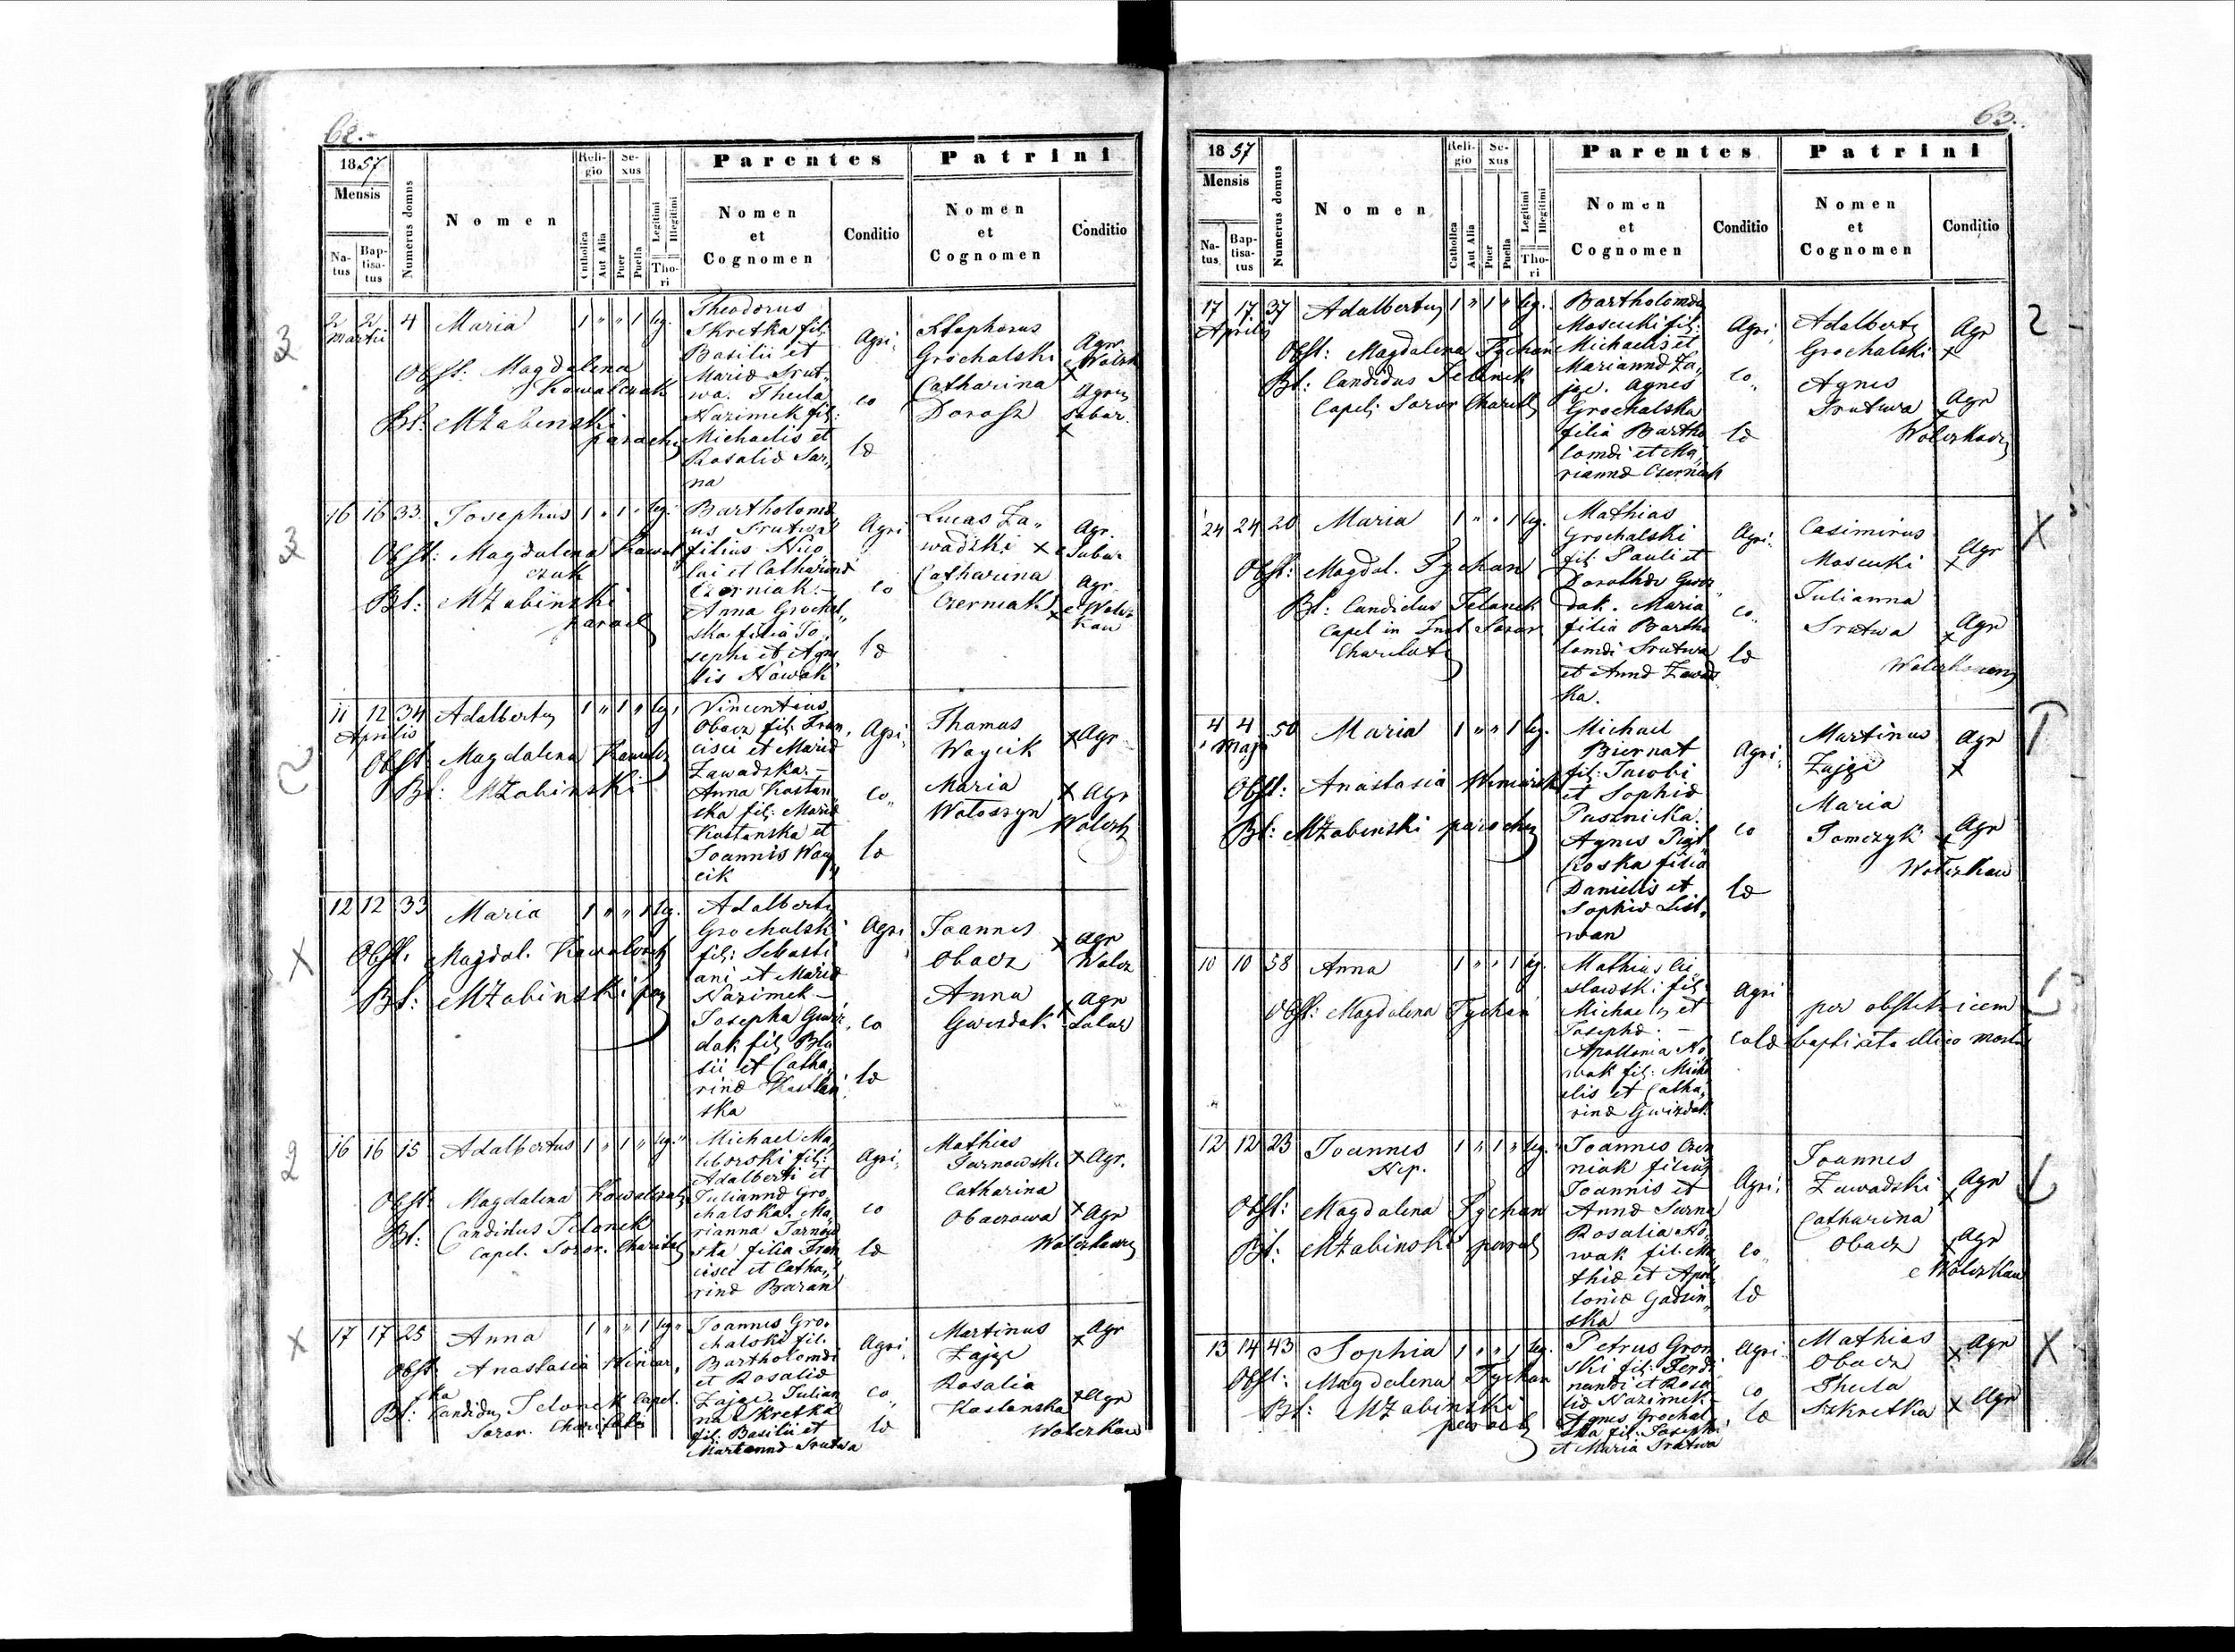 62.
1857
Mensis
Na-
tus
Bap-
tisa-
tus
Numerus domus
Nomen
Reli-
gio
Catholica
Aut Alia
Se-
xus
Puer
Puella
Legitimi
Illegitimi
Tho-
ri
Parentes
Nomen
et
Cognomen
Conditio
Patrini
Nomen
et
Cognomen
Conditio
3
2 2 4 Maria 1 " " 1 leg.
Martii
Obst: Magdalena
Kowalczuk
Bt: MZabinski
parochus
Theodorus
Skretka fil:
Basilii et
Mariæ Srut„
wa. Thecla
Nazimek fil:
Michaelis et
Rosaliæ Sar„
na
Agri„
co
læ
Grochalski
Catharina
Dorosz
Agr.
x
3
16 16 33. Josephus 1 " 1 " leg.
Obst: Magdalena Kowal
czuk
Bt: MZabinski
paroch
Bartholomæ
us Srutwa
filius Nico„
lai et Catharinæ
Czerniak.
Anna Grochal„
ska filia Jo„
sephi et Agne
tis Nowak
Agri
co
læ
Lucas Za„
wadzki x
Catharina
Czerniak x
Agr.
Agr.
11 12 34 Adalbertus 1 " 1 " leg.
Aprilis
Obst: Magdalena Kowalcz
Bt: MZabinski
Vincentius
Obacz fil: Fran„
cisci et Mariæ
Zawadska. –
Anna Kostan
ska fil: Mariæ
Kostanska et
Joannis Woy„
cik
Agri„
co„
læ
Thomas
Woycik
Maria
Wołoszyn
x Agr
x Agr
x
12 12 33 Maria 1 " " 1 leg.
Obst. Magdal. Kowalczuk
Bt: MZabinski par
Adalbertus
Grochalski
fil: Sebasti
ani et Mariæ
Nazimek –
Josepha Gwiz„
dak fil: Bla
sii et Catha„
rinæ Kostan
ska
Agri„
co
læ
Joannes
Obacz
Anna
Gwizdak
x Agr
x Agr
2
16 16 15 Adalbertus 1 " 1 " leg.
Obst. Magdalena Kowalczuk
Bt: Candidus Jelonek
Capel. Soror. Charitatis
Michael Ma„
ciborski fil:
Adalberti et
Juliannæ Gro
chalska. Ma„
rianna Tarnow
ska filia Fran
cisci et Catha„
rinæ Baran
Agri„
co
læ
Mathias
Tarnowski
Catharina
Obaczowa
x Agr.
x Agr
x
17 17 25 Anna 1 " " 1 leg.
Obst. Anastasia Winiar„
ska
Bt: Candidus Jelonek Capel.
Soror. Charitatis
Joannes Gro„
chalski fil.
Bartholomæi
et Rosaliæ
Zając. Julian
na Skretka
fil: Basilii et
Mariannæ Srutwa
Agri„
co„
læ
Martinus
Zając
Rosalia
Kostanska
x Agr
x Agr
63.
1857
Mensis
Na-
tus
Bap-
tisa-
tus
Numerus domus
Nomen
Reli-
gio
Catholica
Aut Alia
Se-
xus
Puer
Puella
Legitimi
Illegitimi
Tho-
ri
Parentes
Nomen
et
Cognomen
Conditio
Patrini
Nomen
et
Cognomen
Conditio
17 17 37 Adalbertus 1 " 1 " leg.
Aprilis
Obst: Magdalena Tychan
Bt: Candidus Jelonek
Capel: Soror Charit
Bartholomæus
Moscicki fil:
Michaelis et
Mariannæ Za„
jąc. Agnes
Grochalska
filia Bartho
lomæi et Ma„
riannæ Czerniak
Agri„
co„
læ
Adalbertus
Grochalski
Agnes
Srutwa
Agr
x
Agr
2 -
24 24 20 Maria 1 " " 1 leg.
Obst: Magdal. Tychan
Bt: Candidus Jelonek
Capel in Inst Soror
Charitatis
Mathias
Grochalski
fil: Pauli et
Dorotheæ Gwiz„
dak. Maria
filia Bartho
lomæi Srutwa
et Annæ Zawad„
ska.
Agri„
co„
læ
Casimirus
Moscicki
Julianna
Srutwa
Agr
x
Agr
x
X
4 4 50 Maria 1 " " 1 leg.
Maji
Obst: Anastasia Winiarska
Bt: MZabinski parochus
Michael
Biernat
fil: Jacobi
et Sophiæ
Pusznicka.
Agnes
filia
Danielis et
Sophiæ Lit„
wan
Agri„
co
læ
Martinus
Zając
Maria
Tomczyk
Agr
x
Agr
x
10 10 58 Anna 1 " " 1 leg.
Obst: Magdalena Tychan
Mathias Cie„
slawski fil:
Michaelis et
Josephæ. –
Apollonia No
wak fil: Micha
elis et Catha„
rinæ Gwizdak
Agri
co læ
per obstetricem
baptisata illico mortua
12 12 23 Joannes 1 " 1 " leg.
Nep.
Obst: Magdalena Tychan
Bt: MZabinski paroch
Joannes Czer
niak filius
Joannis et
Annæ Sarna
Rosalia No„
wak fil: Ma
thiæ et Apol„
loniæ Gadzin„
ska
Agri„
co„
læ
Joannes
Zawadski
Catharina
Obacz
x Agr
x Agr
13 14 43 Sophia 1 " " 1 leg.
Obst: Magdalena Tychan
Bt: MZabinski
paroch
Petrus Gron
ski fil: Ferdi
nandi et Rosa
liæ Nazimek –
Agnes Grochal„
ska fil: Josephi
et Maria Srutwa
Agri
co
læ
Mathias
Obacz
Thecla
Szkretka
x Agr
x Agr
X